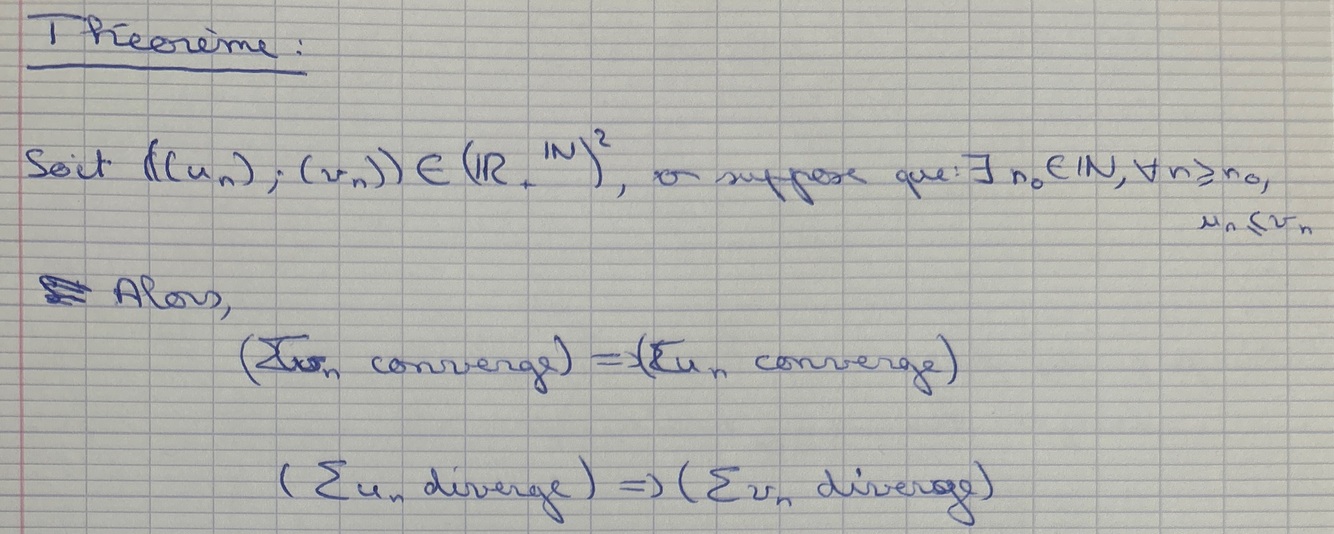 Théorème :
Soit ((uₙ) ; (vₙ)) ∈ (ℝ₊^ℕ)², on suppose que : ∃ n₀ ∈ ℕ, ∀ n ≥ n₀,
uₙ ≤ vₙ
Alors,
(Σvₙ converge) ⇒ (Σuₙ converge)
(Σuₙ diverge) ⇒ (Σvₙ diverge)